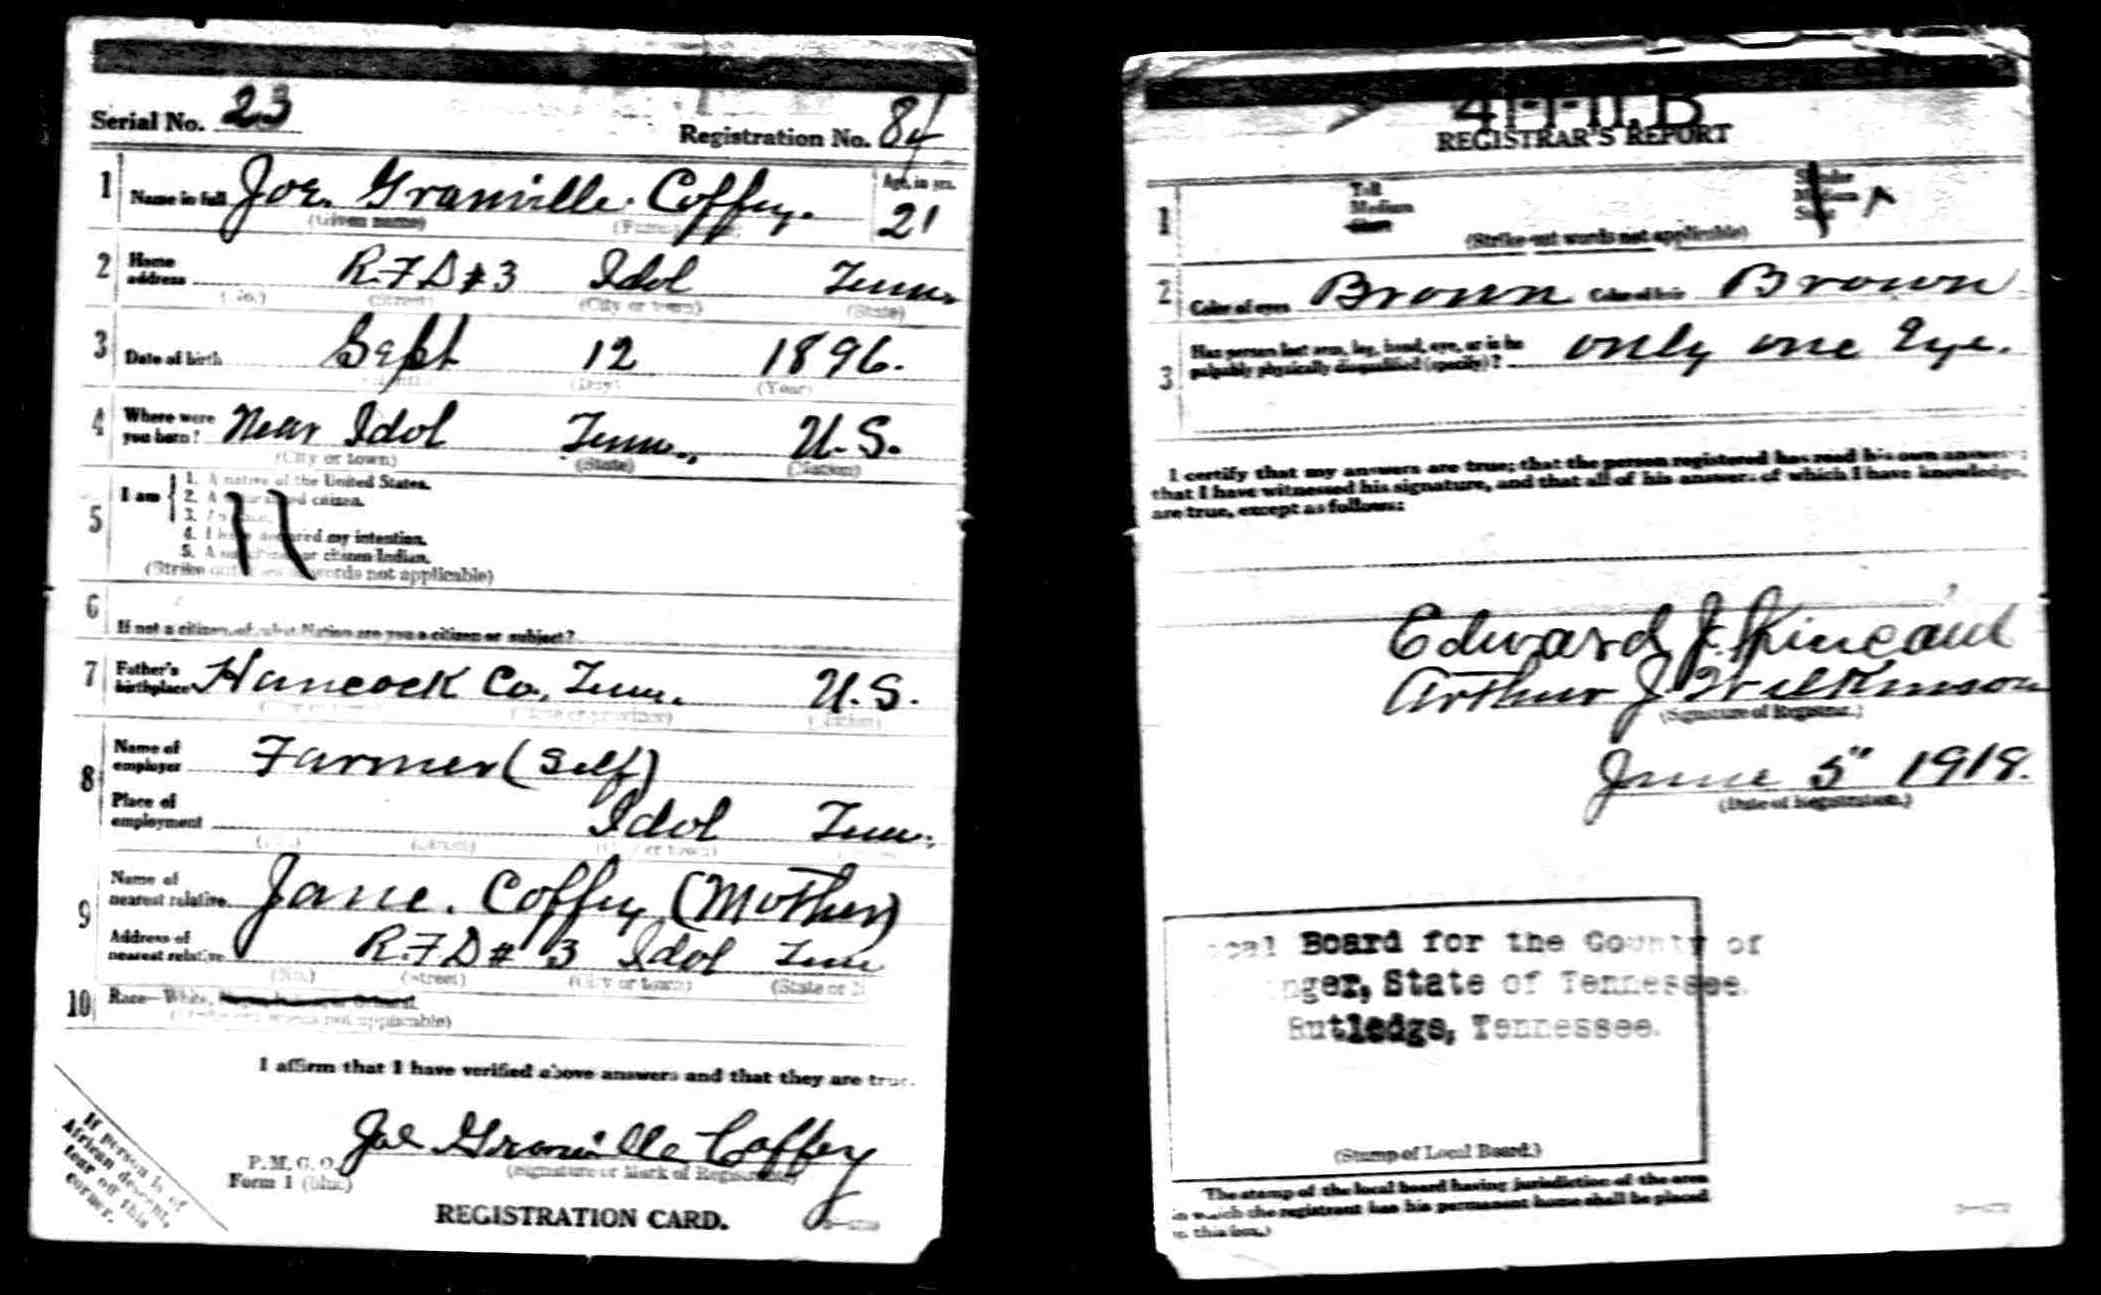 Serial No. 23
Registration No. 84
1 Name in full Joe. Granville. Coffey. Age, in yrs. 21
(Given name)
2 Home address R.F.D #3 Idol Tenn.
(No.) (Street) (City or town) (State)
3 Date of birth Sept 12 1896.
(Day) (Year)
4 Where were you born? Near Idol Tenn., U.S.
(City or town) (State) (Nation)
5 I am
1. A native of the United States.
2. A citizen.
3.
4. I my intention.
5. A or citizen Indian.
(Strike out words not applicable)
6 If not a citizen, of what Nation are you a citizen or subject?
7 Father's birthplace Hancock Co., Tenn. U.S.
8 Name of employer Farmer (Self)
Place of employment Idol Tenn.
(Street) (City or town)
9 Name of nearest relative Jane. Coffey (Mother)
Address of nearest relative R.F.D # 3 Idol Tenn
(No.) (Street) (City or town)
10 Race—White,
(not applicable)
I affirm that I have verified above answers and that they are true.
Joe Granville Coffey
P. M. G. O. (Signature or Mark of Registrant)
Form 1 (blue)
REGISTRATION CARD.
If person is of
African descent,
tear off this
corner.
REGISTRAR'S REPORT
1 Tall
Medium
Short
Slender
Medium
(Strike out words not applicable)
2 Color of eyes Brown Color of hair Brown
3 Has person lost arm, leg, hand, eye, or is he
palpably physically disqualified (specify)? only one Eye.
I certify that my answers are true; that the person registered has read his own answers;
that I have witnessed his signature, and that all of his answers of which I have knowledge
are true, except as follows:
Edward J. Kincaid
Arthur J Wilkinson
(Signature of Registrar.)
June 5" 1918.
(Date of Registration.)
Board for the County of
State of Tennessee.
Rutledge, Tennessee.
(Stamp of Local Board.)
The stamp of the local board having jurisdiction of the area
in which the registrant has his permanent home shall be placed
in this box.)